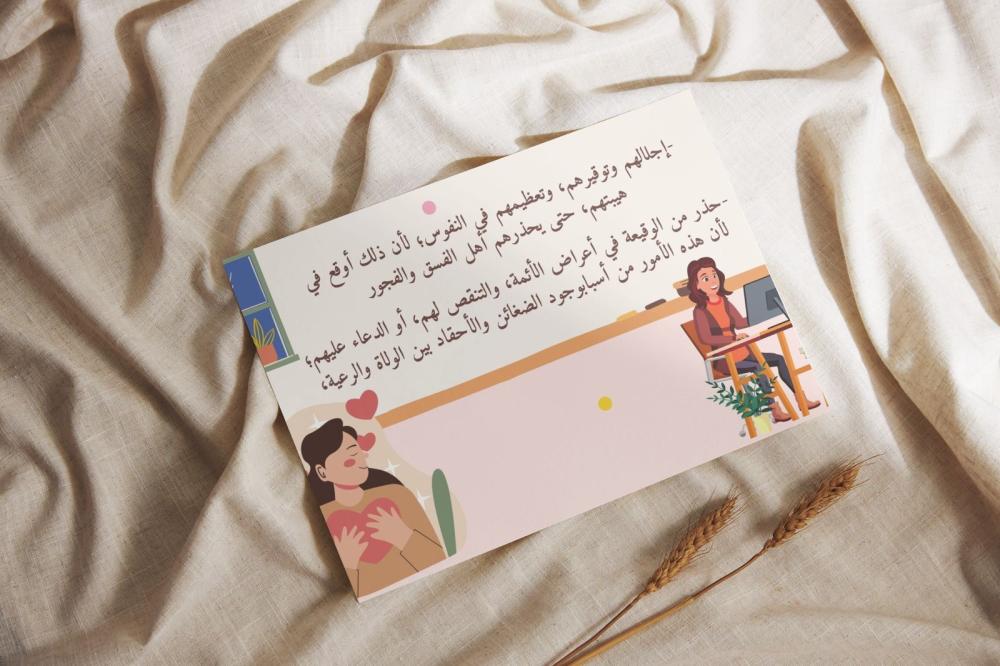 -إجلالهم وتوقيرهم، وتعظيمهم في النفوس؛ لأن ذلك أوقع في
هيبتهم، حتى يحذرهم أهل الفسق والفجور
-حذر من الوقيعة في أعراض الأئمة، والتنقص لهم، أو الدعاء عليهم؛
لأن هذه الأمور من أسبابوجود الضغائن والأحقاد بين الولاة والرعية،